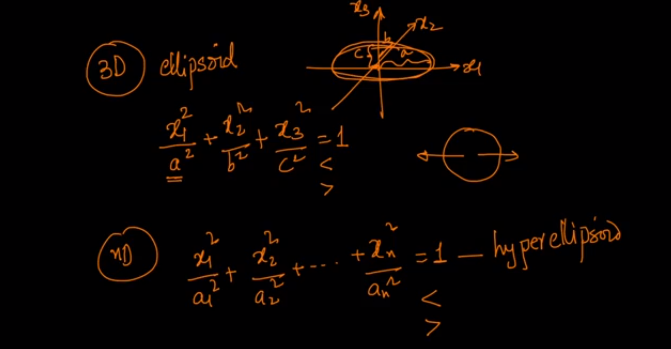 3D ellipsoid
x₃
x₂
x₁
a
b
c
x₁²/a² + x₂²/b² + x₃²/c² = 1
<
>
nD x₁²/a₁² + x₂²/a₂² + ---- + xₙ²/aₙ² = 1 — hyperellipsoid
<
>